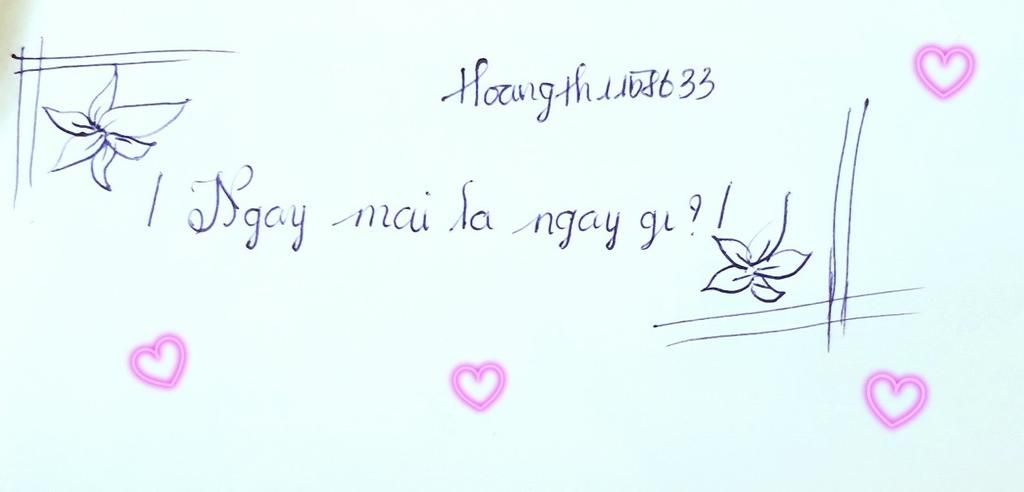 Hoangth1158633
/ Ngay mai la ngay gi? /